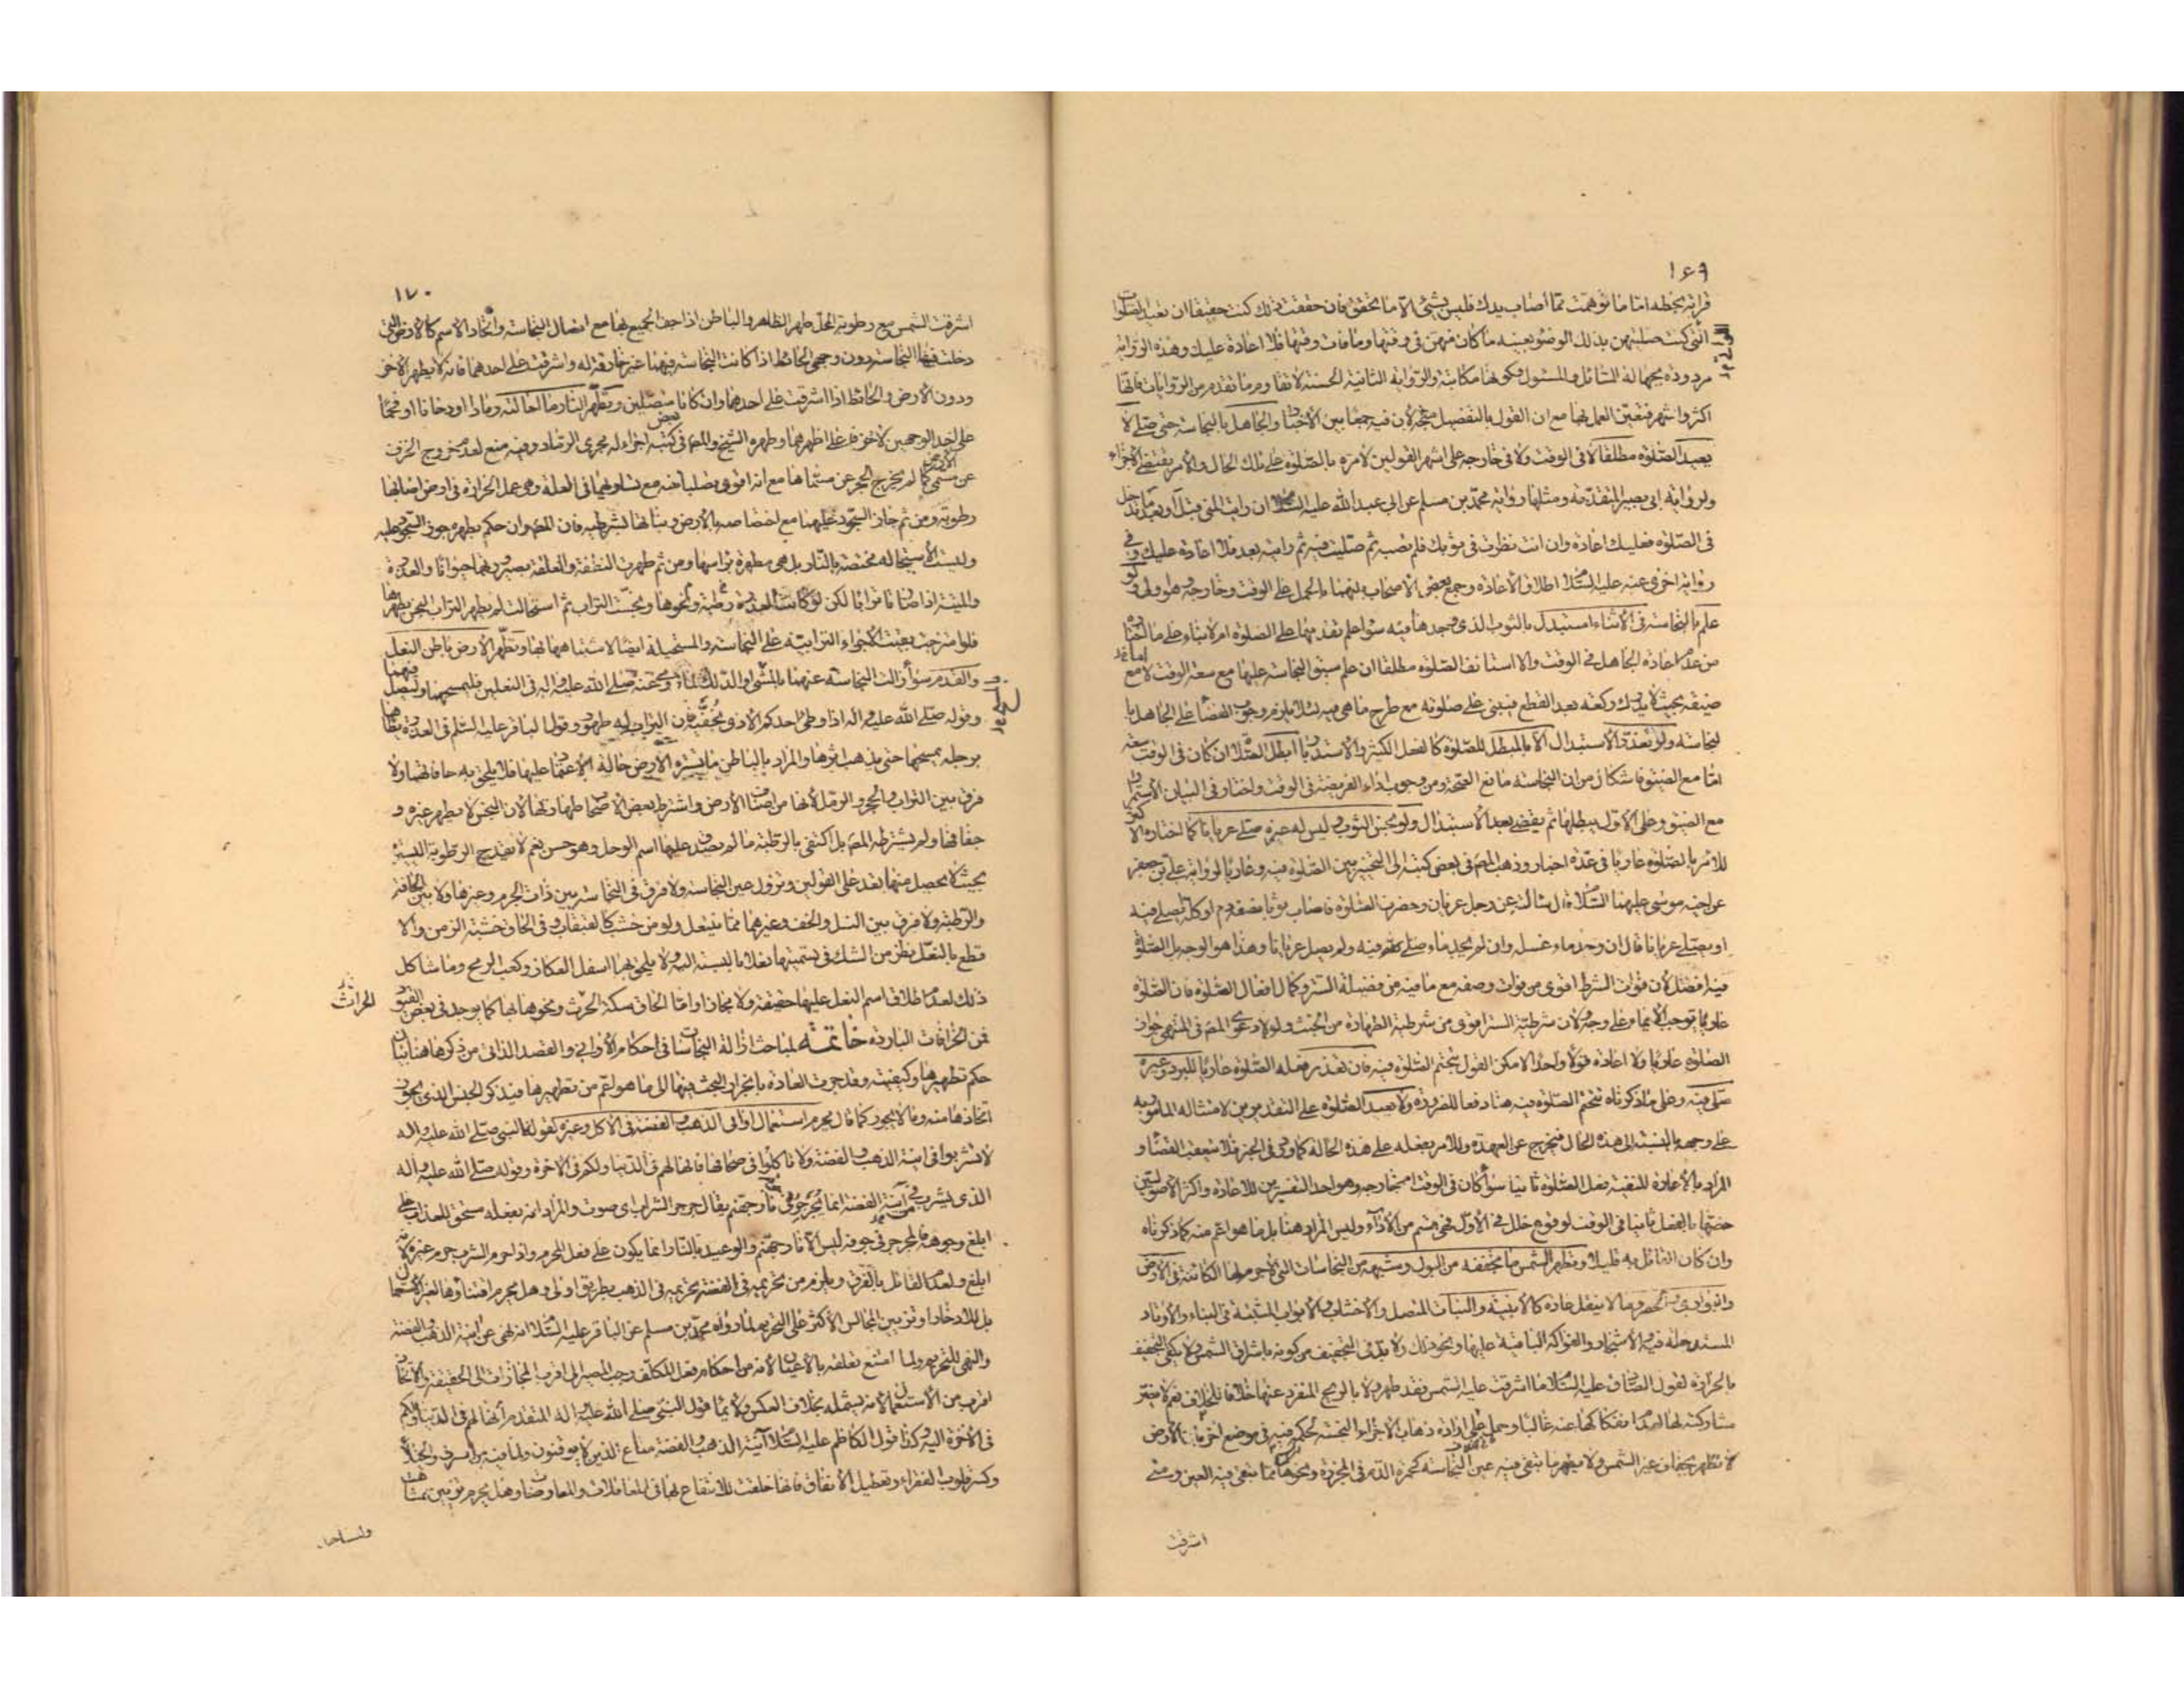 ١٦٩
قرائه بخطه اما ما توهمت مما أصاب يدك فليس بشئ الا ما تحقق فان حققت ذلك كنت حقيقا ان تعيد الصلوات
التي كنت صليتهن بذلك الوضوء بعينه ما كان منهن في وقتها وما فات وقتها فلا اعادة عليك وهذه الرواية
مردودة بجهالة السائل والمسئول وكونها مكاتبة والرواية الثانية الحسنة لانفا ومر ما تقدم من الروايات فانها
اكثر واشهر فتعين العمل بها مع ان القول بالتفصيل متجه لان فيه جمعا بين الاخبار والجاهل بالنجاسة حتى صلى لا
يعيد الصلوة مطلقا لا في الوقت ولا في خارجه على اشهر القولين لامره بالصلوة على تلك الحال والامر يقتضي الاجزاء
ولرواية ابي بصير المتقدمة ومثلها رواية محمد بن مسلم عن ابي عبد الله عليه السلام ان رايت المني قبل او بعد ما تدخل
في الصلوة فعليك اعادة وان انت نظرت في ثوبك فلم تصبه ثم صليت فيه ثم رايته بعد فلا اعادة عليك وفي
رواية اخرى عنه عليه السلام اطلاق الاعادة وجمع بعض الاصحاب بينهما بالحمل على الوقت وخارجه وهو اولى ولو
علم بالنجاسة في الاثناء استبدل بالثوب الذي وجدها فيه سواء علم تقدمها على الصلوة ام لا بناء على ما اختاره
من عدم اعادة الجاهل في الوقت والا استانف الصلوة مطلقا ان علم سبق النجاسة عليها مع سعة الوقت لا مع
ضيقه بحيث لا يدرك ركعة بعد القطع فيبنى على صلوته مع طرح ما هي فيه لئلا يلزم وجوب القضاء على الجاهل با
لنجاسة ولو تعذر الاستبدال الا بالمبطل للصلوة كالفعل الكثير والاستدبار ابطل الصلاة ان كان في الوقت سعة
اما مع الضيق فاشكال من ان النجاسة مانع الصحة ومن وجوب اداء الفريضة في الوقت واختار في البيان الاستمرار
مع الضيق وعلى الاول يبطلها ثم يقضي بعد الاستبدال ولو نجس الثوب وليس له غيره صلى عريانا كما اختاره الاكثر
للامر بالصلوة عاريا في عدة اخبار وذهب المص في بعض كتبه الى التخيير بين الصلوة فيه وعاريا لرواية علي بن جعفر
عن اخيه موسى عليهما السلام قال سالته عن رجل عريان وحضرت الصلوة فاصاب ثوبا نصفه دم او كله يصلي فيه
او يصلي عريانا قال ان وجد ماء غسله وان لم يجد ماء صلى فيه ولم يصل عريانا وهذا هو الوجه بل الصلوة
فيه افضل لان فوات الشرط اقوى من فوات وصفه مع ما فيه من فضيلة الستر وكمال افعال الصلوة فان الصلوة
عاريا توجب الايماء على وجه ولان شرطية الستر اقوى من شرطية الطهارة من الخبث ولولا دعوى المص في المنتهى جواز
الصلوة عاريا ولا اعادة قولا واحدا لامكن القول بتحتم الصلوة فيه فان تعذر فعله الصلوة عاريا للبرد وغيره
صلى فيه وعلى ما ذكرناه تتحتم الصلوة فيه هنا دفعا للضرورة ولا يعيد الصلوة على التقديرين لامتثاله المامور به
على وجهه بالنسبة الى هذه الحال فيخرج عن العهدة وللامر بفعله على هذه الحالة كما ورد في الخبر فلا يستعقب القضاء و
المراد بالاعادة المنفية فعل الصلوة ثانيا سواء كان في الوقت ام خارجه وهو احد التفسيرين للاعادة واكثر الاصوليين
خصها بالفعل ثانيا في الوقت لوقوع خلل في الاول فهي قسم من الاداء وليس المراد هنا بل ما هو اعم منه كما ذكرناه
وان كان القائل به قليلا وتطهر الشمس ما تجففه من البول وشبهه من النجاسات التي لا جرم لها الكائنة في الارض
والبواري والحصر وما لا ينقل عادة كالابنية والنبات المتصل والاخشاب والابواب المثبتة في البناء والاوتاد
المستدخلة فيه والاشجار والفواكه الباقية عليها ونحو ذلك ولا بد في التجفيف من كونه باشراق الشمس فلا يكفي التجفيف
بالحرارة لقول الصادق عليه السلام ما اشرقت عليه الشمس فقد طهر ولا بالريح المنفرد عنها خلافا للخلاف نعم لا يضر
مشاركته لها لعدم انفكاكها عنه غالبا وحمل على ارادة ذهاب الاجزاء النجسة لحكمه فيه في موضع اخر بان الارض
لا تطهر بجفاف غير الشمس ولا يطهر ما تبقى فيه عين النجاسة كحمرة الدم في المجزرة ونحوها مما تبقى فيه العين ومتى
اشرقت
١٧٠
اشرقت الشمس مع رطوبة المحل طهر الظاهر والباطن اذا جف الجميع بها مع اتصال النجاسة واتحاد الاسم كالارض التي
دخلت فيها النجاسة دون وجهي الحائط اذا كانت النجاسة فيهما غير خارقة له واشرقت على احدهما فانه لا يطهر الاخر
ودون الارض والحائط اذا اشرقت على احدهما وان كانا متصلين وتطهر النار ما احالته رمادا او دخانا او فحما
على احد الوجهين لا خزفا على اظهرهما وطهره الشيخ والمص في بعض كتبه اجراء له مجرى الرماد وفيه منع لعدم خروج الخزف
عن مسمى الارض كما لم يخرج الحجر عن مسماها مع انه اقوى تصلبا منه مع تساويهما في العلة وهي عمل الحرارة في ارض اصابها
رطوبة ومن ثم جاز السجود عليهما مع اختصاصه بالارض ونباتها بشرطيه فان المص وان حكم بطهره جوز السجود عليه
وليست الاستحالة مختصة بالنار بل هي مطهرة براسها ومن ثم طهرت النطفة والعلقة بصيرورتهما حيوانا والعذرة
والميتة اذا صارتا ترابا لكن لو كانت العذرة رطبة ونحوها ونجست التراب ثم استحالت لم يطهر التراب النجس بطهرها
فلو امتزجت بقيت الاجزاء الترابية على النجاسة والمستحيلة ايضا لاشتباهها بها وتطهر الارض باطن النعل
والقدم سواء زالت النجاسة عنهما بالمشي او الدلك لما روي عنه صلى الله عليه واله في النعلين فليمسحهما وليصل فيهما
وقوله صلى الله عليه واله اذا وطئ احدكم الاذى بخفيه فان التراب له طهور وقول الباقر عليه السلام في العذرة يطاها
برجله يمسحها حتى يذهب اثرها والمراد بالباطن ما يستره الارض حالة الاعتماد عليها فلا يلحق به حافاتهما ولا
فرق بين التراب والحجر والرمل لانها من اصناف الارض واشترط بعض الاصحاب طهارتها لان النجس لا يطهر غيره و
جفافها ولم يشترطه المص بل اكتفى بالرطبة ما لم يصدق عليها اسم الوحل وهو حسن نعم لا يقدح الرطوبة اليسيرة
بحيث لا يحصل منها تعد على القولين وتزول عين النجاسة ولا فرق في النجاسة بين ذات الجرم وغيرها ولا بين الجافة
والرطبة ولا فرق بين النعل والخف وغيرهما مما ينتعل ولو من خشب كالقبقاب وفي الحاق خشبة الزمن والا
قطع بالنعل نظر من الشك في تسميتها نعلا بالنسبة اليه ولا يلحق بها اسفل العكاز وكعب الرمح وما شاكل
ذلك لعدم اطلاق اسم النعل عليها حقيقة ولا مجازا واما الحاق سكة الحرث ونحوها بها كما يوجد في بعض القيود
فمن الخرافات الباردة خاتمة لمباحث ازالة النجاسات في احكام الاواني والقصد الذاتي من ذكرها هنا بيان
حكم تطهيرها وكيفيته وقد جرت العادة بانجرار البحث فيها الى ما هو اعم من تطهيرها فيذكر الجنس الذي يجوز
اتخاذها منه وما لا يجوز كما قال يحرم استعمال اواني الذهب والفضة في الاكل وغيره لقول النبي صلى الله عليه واله
لا تشربوا في انية الذهب والفضة ولا تاكلوا في صحافها فانها لهم في الدنيا ولكم في الاخرة وقوله صلى الله عليه واله
الذي يشرب في آنية الفضة انما يجرجر في جوفه نار جهنم يقال جرجر الشراب اي صوت والمراد انه بفعله مستحق للعذاب على
ابلغ وجوهه فالمجرجر في جوفه ليس الا نار جهنم والوعيد بالنار انما يكون على فعل المحرم واذا حرم الشرب حرم غيره لانه
ابلغ ولعدم القائل بالفرق ويلزم من تحريمه في الفضة تحريمه في الذهب بطريق اولى وهل يحرم اقتناؤها لغير الاستعمال
بل للادخار او تزيين المجالس الاكثر على التحريم لما رواه محمد بن مسلم عن الباقر عليه السلام انه نهى عن انية الذهب والفضة
والنهي للتحريم ولما امتنع تعلقه بالاعيان لانه من احكام فعل المكلف وجب المصير الى اقرب المجازات الى الحقيقة والاتخاذ
اقرب من الاستعمال لانه يشمله بخلاف العكس ولايماء قول النبي صلى الله عليه واله المتقدم انها لهم في الدنيا ولكم
في الاخرة اليه وكذا قول الكاظم عليه السلام آنية الذهب والفضة متاع الذين لا يوقنون ولما فيه من السرف والخيلاء
وكسر قلوب الفقراء وتعطيل الانفاق فانها خلقت للانتفاع بها في المعاملات والمعاوضات وهل يحرم تزيين